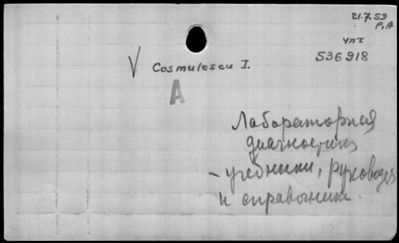 21.7.59
P, A
УПТ
536918
V Cosmulescu I.
A
Лабораторная
диагностика
- учебники, руковод.
и справочники.